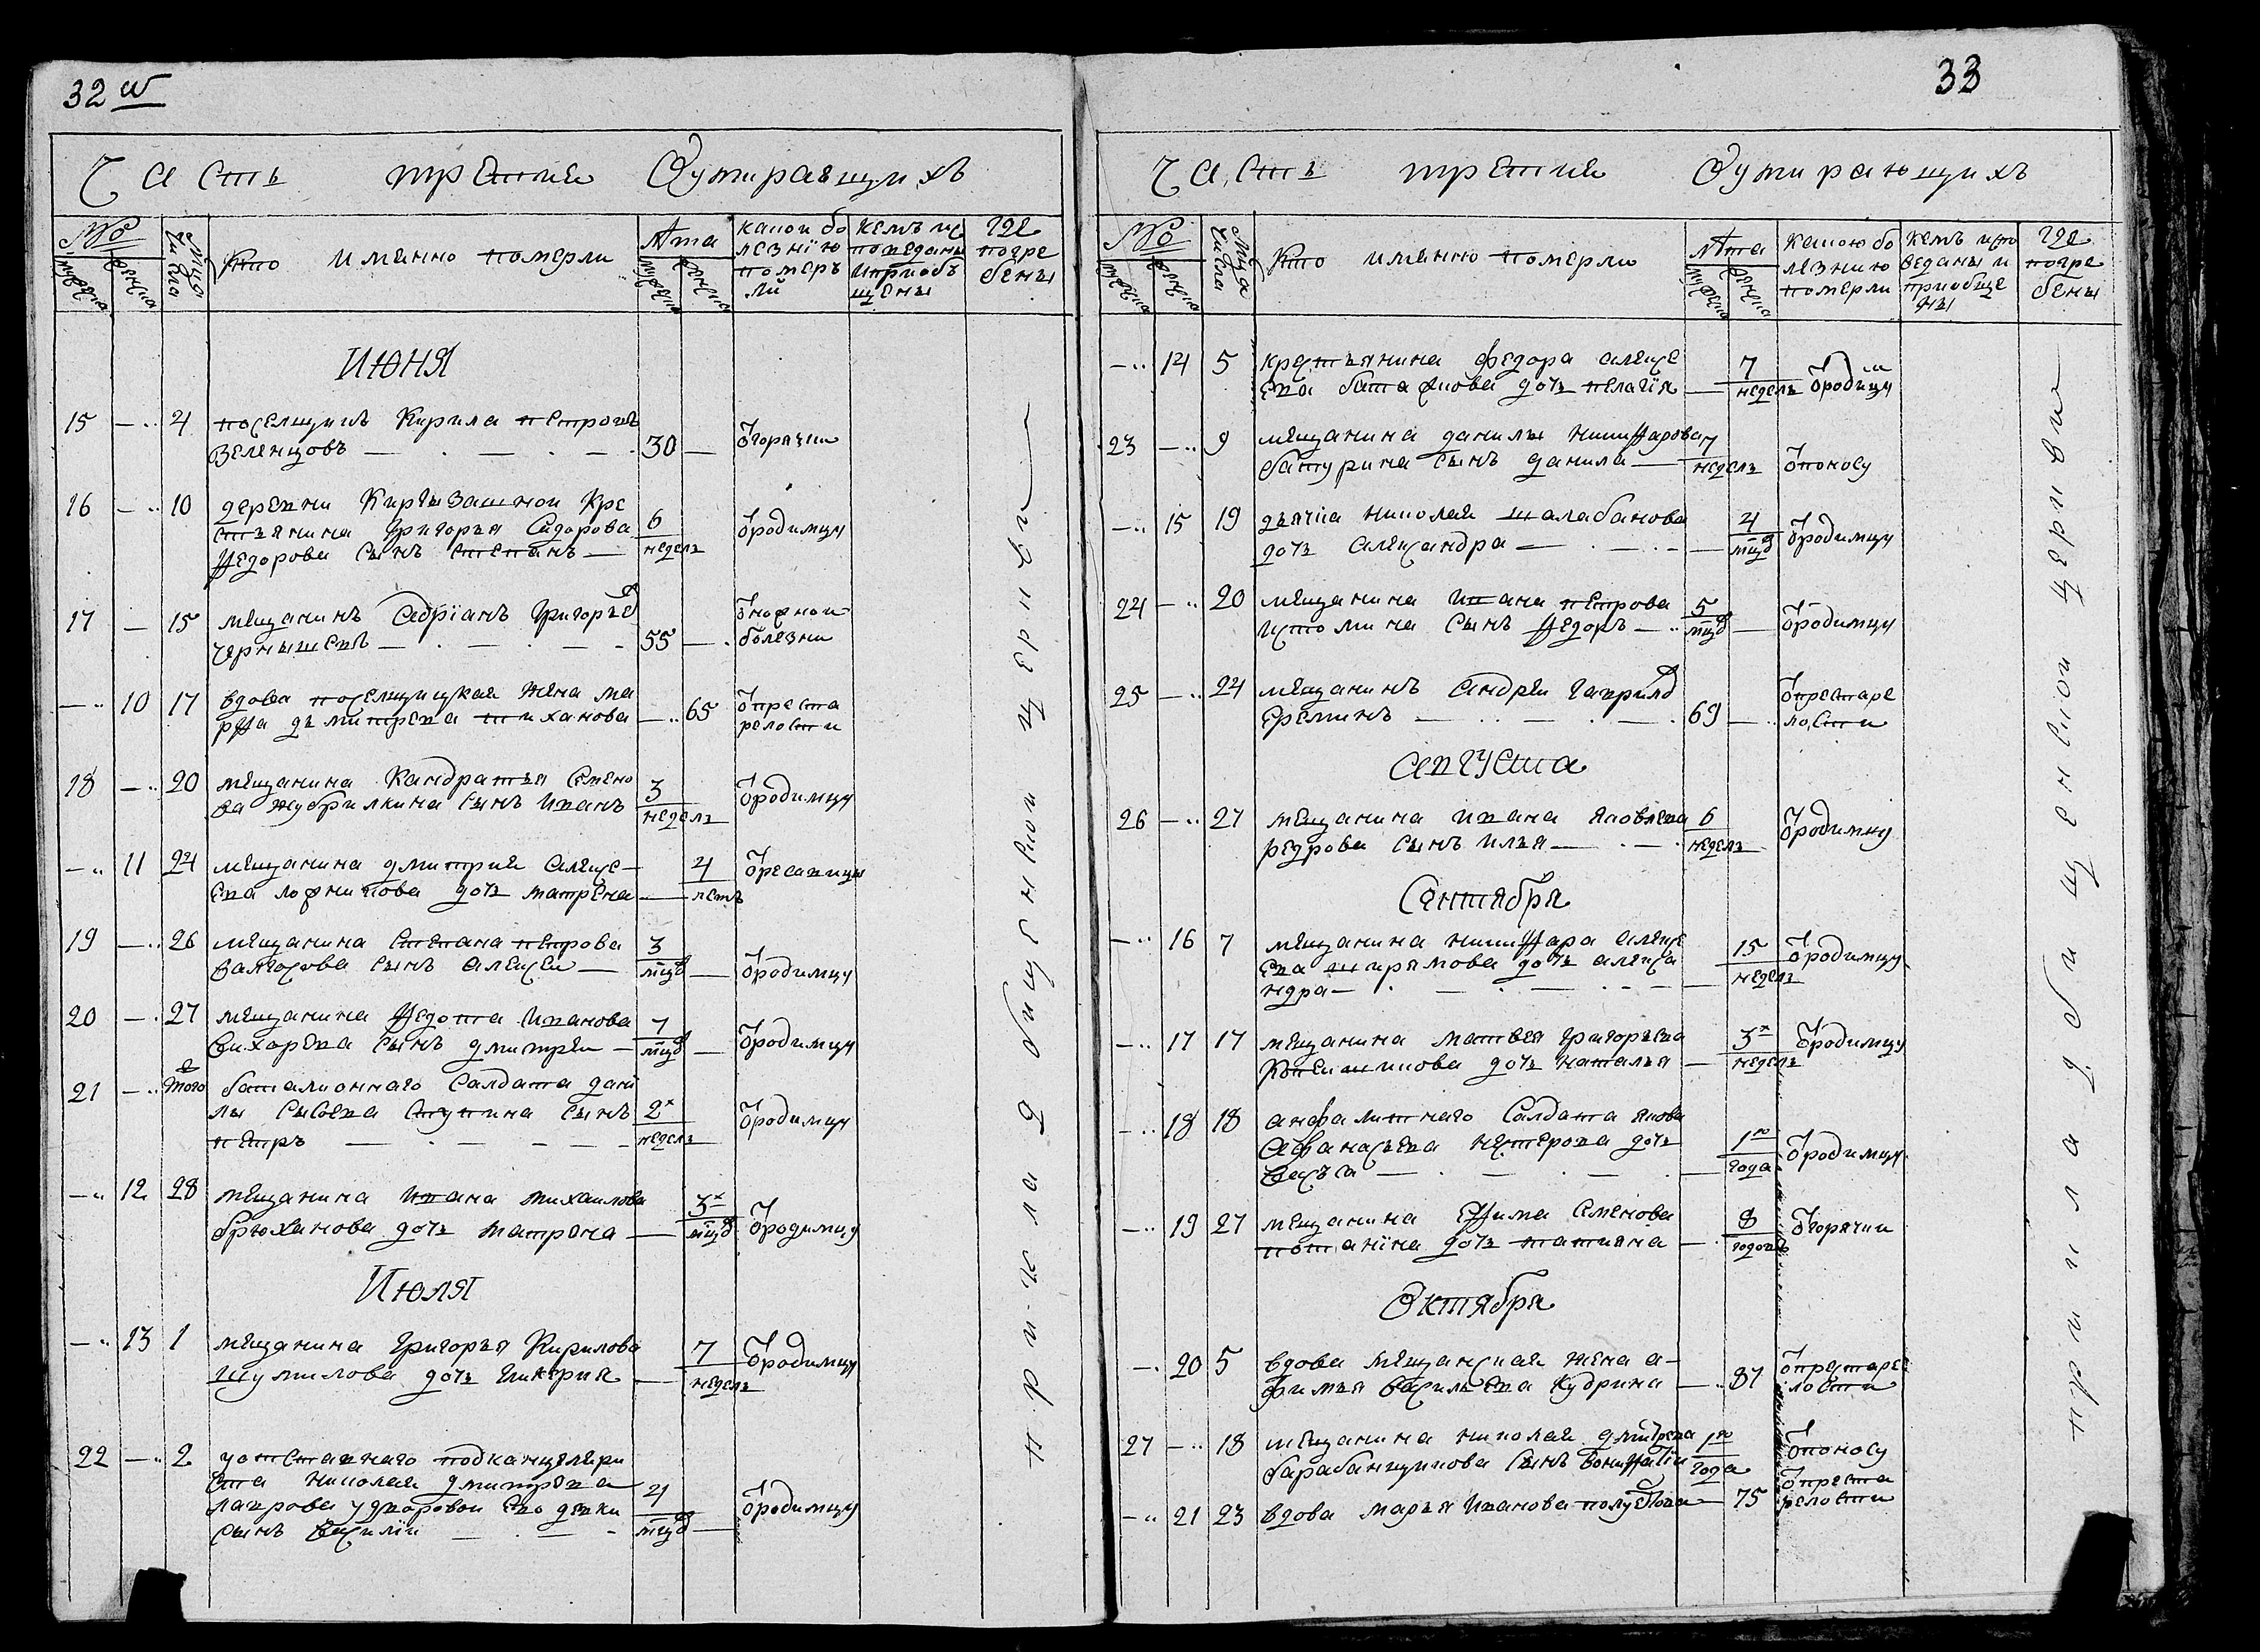 32 об
Часть третия Оумирающихъ
№
мужеска
женска
Мца числа
Кто именно померли
лѣта
мужеска
женска
какои бо
лезнїю
померъ
ли
кемъ ис
поведаны
и приобъ
щены
где
погре
бены
ИЮНЯ
15 — 4 посельщикъ Кирила петровъ
Зеленцовъ — 30 — от горячки
16 — 10 деревни Киргызашнои Кре
стьянина Григорья Сидорова 6
Ѳедорова сынъ степанъ — недель от родимцу
17 — 15 мещанинъ Адрїанъ Григорьев
чернышевъ — 55 — от ножной
болезни
— 10 17 вдова поселщицкая жена ма
рѳа дьмитрева шиханова — 65 от преста
релости
18 — 20 мещанина Кандратья Семено
ва жубрилкина сынъ Иванъ 3
недель от родимцу
— 11 24 мещанина дмитрия алексе
ева ложникова дочь матрена — 4
летъ
19 — 26 мещанина Степана петрова 3
сынъ алексеи — мцов — от родимцу
20 — 27 мещанина Ѳедота Иванова 7
Вихарева сынъ дмитреи — мцов — от родимцу
21 — того баталионнаго Салдата дани
лы сысоева Ступина сынъ 2х
петръ — недель — от родимцу
— 12 28 мещанина Ивана михаилова 3х
брюханова дочь матрена — мцов от родимцу
Июля
— 13 1 мещанина Григорья Кирилова 7
Шумилова дочь Гликерия — недель от родимцу
22 — 2 уотставнаго подканцеляри
ста николая дмитрева
лаврова у дворовои ево девки 4
сынъ василїи — мцов — от родимцу
при кладбищенской церкви
33
Часть третия Оумирающихъ
№
мужеска
женска
Мца числа
Кто именно померли
лѣта
мужеска
женска
какою бо
лезнию
померли
кемъ испо
веданы и
приобще
ны
где
погре
бены
— 14 5 крестьянина федора алексе 7
ева дочь пелагїя — недель от родимцу
23 — 9 мещанина данилы никиѳарова 7
батурина сынъ данила — недель от поносу
— 15 19 дьячка николая шалабанова 4
дочь александра — мцов от родимцу
24 — 20 мещанина Ивана петрова 5
истомина сынъ Ѳедоръ — мцов — от родимцу
25 — 24 мещанинъ андреи гаврилов
Ереминъ — 69 — от престаре
лости
Августа
26 — 27 мещанина ивана яковлева 6
редрова сынъ илья — недель от родимцу
Сентября
— 16 7 мещанина никиѳара алексе 15
ева ширямова дочь алекса недель
ндра — от родимцу
— 17 17 мещанина матвея григорьева 3х
дочь наталья — недель от родимцу
— 18 18 Салдата якова
Афанасьева нестерова дочь 1го
— года от родимцу
— 19 27 мещанина Еѳима Семенова 8
потанїна дочь татияна — годовъ от горячки
Октября
— 20 5 вдова мещанская жена а-
фимья васильева кудрина — 87 от престаре
лости
27 — 18 мещанина николая дмитрева 1го
барабанщикова сынъ вониѳатїи года от поносу
— 21 23 вдова марья Иванова полуектова — 75 от преста
релости
при кладбищенской церкви